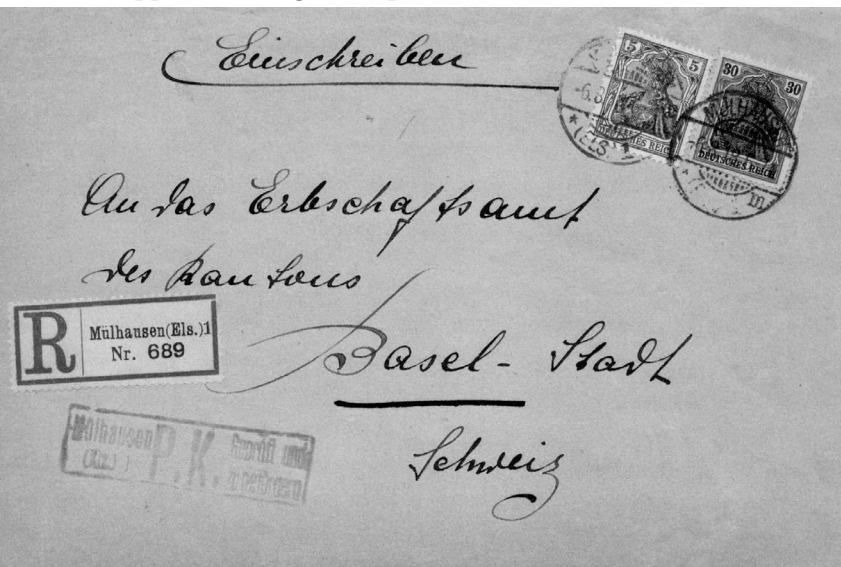 Einschreiben
5 5
DEUTSCHES REICH
30 30
DEUTSCHES REICH
-6.8
* (ELS.)
MÜLHAUSEN
m
An das Erbschaftsamt
des Kantons
Basel-Stadt
Schweiz
R
Mülhausen(Els.)1
Nr. 689
Mülhausen
(Els.)
P.K.
Geprüft und